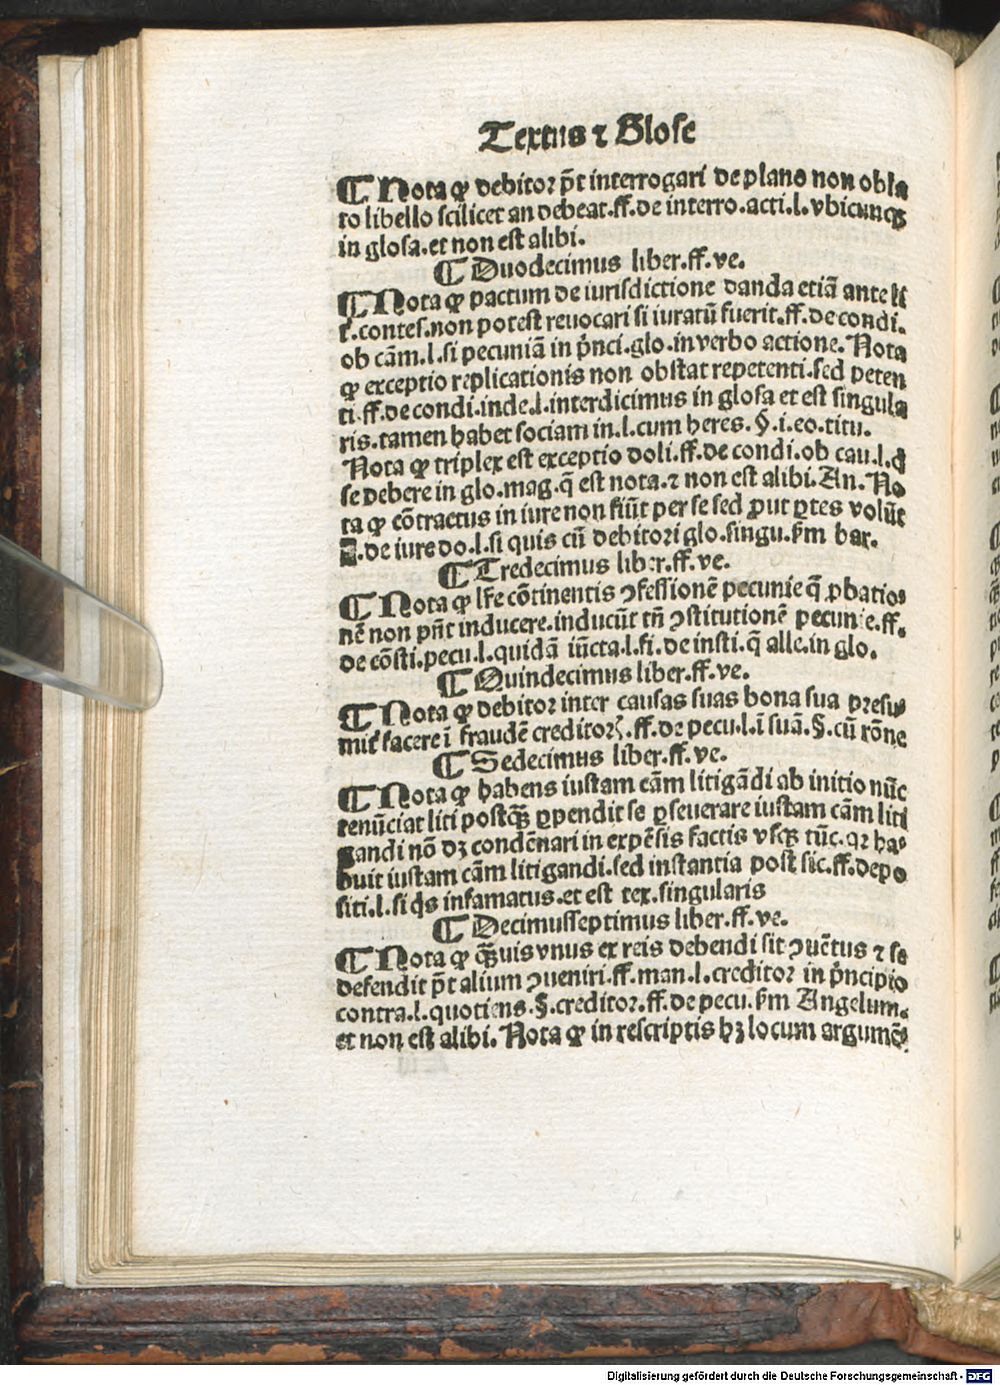 Textus ⁊ Glose
¶ Nota ꝙ debitor p̄t interrogari de plano non obla
to libello scilicet an debeat.ff.de interro.acti.l.vbicunqꝫ
in glosa.et non est alibi.
¶ Duodecimus liber.ff.ve.
¶ Nota ꝙ pactum de iurisdictione danda etiā ante li
t̄.contes.non potest reuocari si iuratū fuerit.ff.de condi.
ob cām.l.si pecuniā in p̄nci.glo.in verbo actione. Nota
ꝙ exceptio replicationis non obstat repetenti.sed peten
ti.ff.de condi.inde.l.interdicimus in glosa et est singula
ris.tamen habet sociam in.l.cum heres.§.i.eo.titu.
Nota ꝙ triplex est exceptio doli.ff.de condi.ob cau.l.q̄
se debere in glo.mag.q̄ est nota.⁊ non est alibi. An. No
ta ꝙ cōtractus in iure non fiūt per se sed ꝓut ꝑtes volūt
.de iure do.l.si quis cū debitori glo.singu.s̄m bar.
¶ Tredecimus liber.ff.ve.
¶ Nota ꝙ lr̄e cōtinentis ꝯfessionē pecunie q̄ ꝓbatio⸗
nē non pn̄t inducere.inducūt tn̄ ꝯstitutionē pecunie.ff.
de cōsti.pecu.l.quidā iūcta.l.fi.de insti.q̄ alle.in glo.
¶ Quindecimus liber.ff.ve.
¶ Nota ꝙ debitor inter causas suas bona sua presu⸗
mit̄ facere ī fraudē creditorꝝ.ff.de pecu.l.ī suā.§.cū rōne
¶ Sedecimus liber.ff.ve.
¶ Nota ꝙ habens iustam cām litigādi ab initio nūc
renūciat liti postqꝫ ꝑpendit se ꝑseuerare iustam cām liti
gandi nō dꝫ condēnari in expēsis factis vsqꝫ tūc.qꝛ ha⸗
buit iustam cām litigandi.sed instantia post sic.ff.depo
siti.l.si q̄s infamatus.et est tex.singularis
¶ Decimusseptimus liber.ff.ve.
¶ Nota ꝙ qꝫuis vnus ex reis debendi sit ꝯuētus ⁊ se
defendit p̄t alium ꝯueniri.ff.man.l.creditor in p̄ncipio
contra.l.quotiens.§.creditor.ff.de pecu.s̄m Angelum.
et non est alibi. Nota ꝙ in rescriptis hꝫ locum argumē⸗
Digitalisierung gefördert durch die Deutsche Forschungsgemeinschaft - DFG